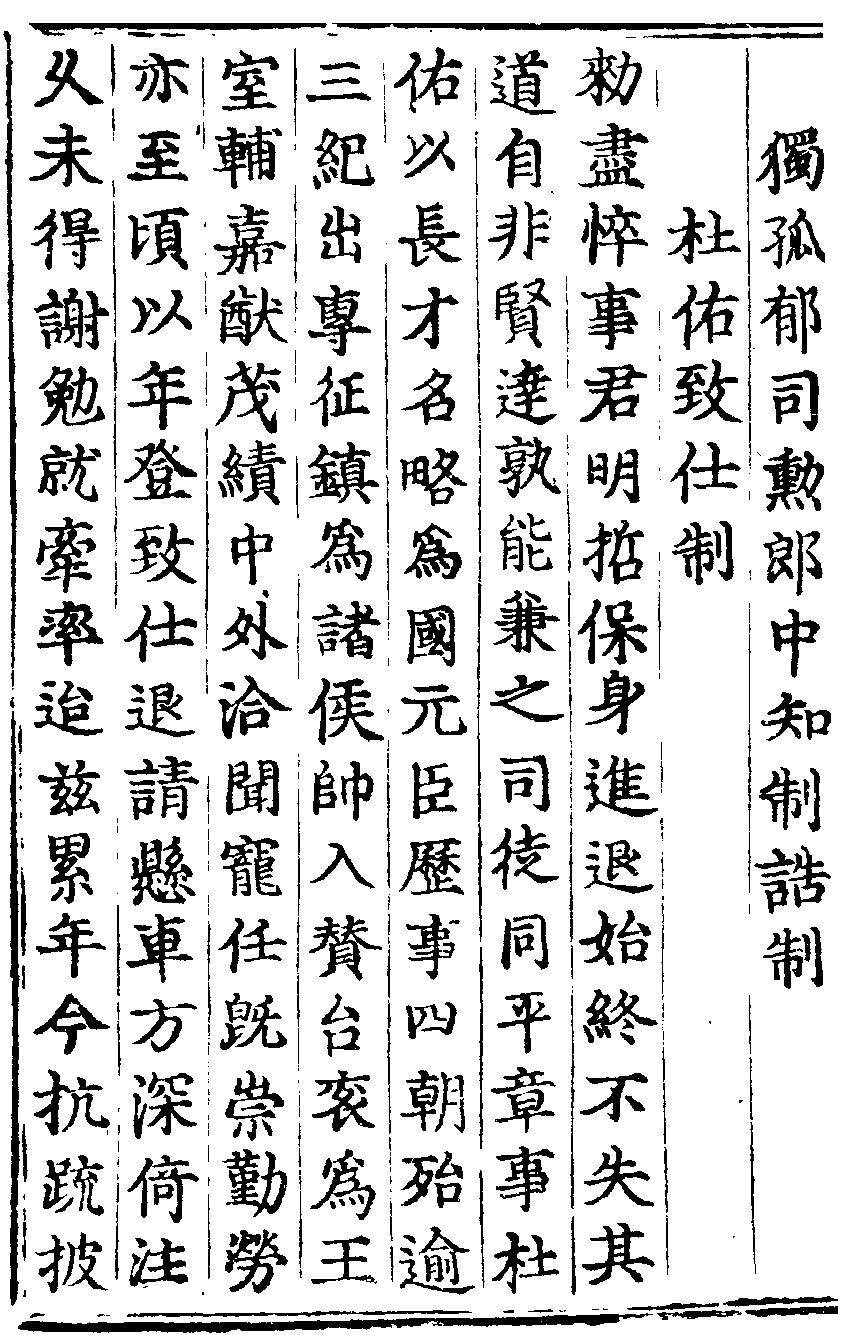 獨孤郁司勲郎中知制誥制
杜佑致仕制
勑盡悴事君明哲保身進退始終不失其
道自非賢達孰能兼之司徒同平章事杜
佑以長才名略爲國元臣歷事四朝殆逾
三紀出專征鎮爲諸侯帥入賛台衮爲王
室輔嘉猷茂績中外洽聞寵任旣崇勤勞
亦至頃以年登致仕退請懸車方深倚注
乆未得謝勉就牽率迨兹累年今抗䟽披